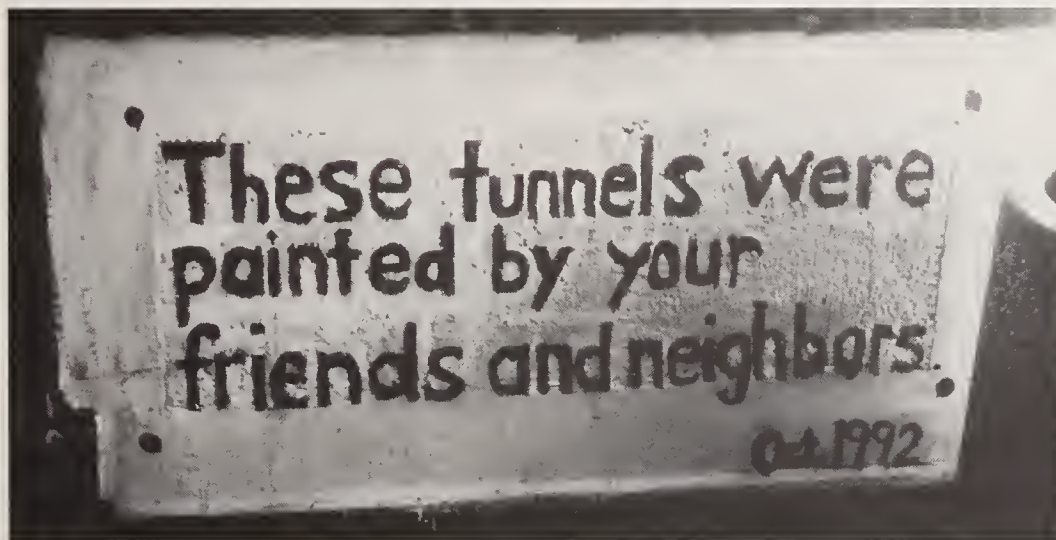 These tunnels were
painted by your
friends and neighbors.
Oct. 1992